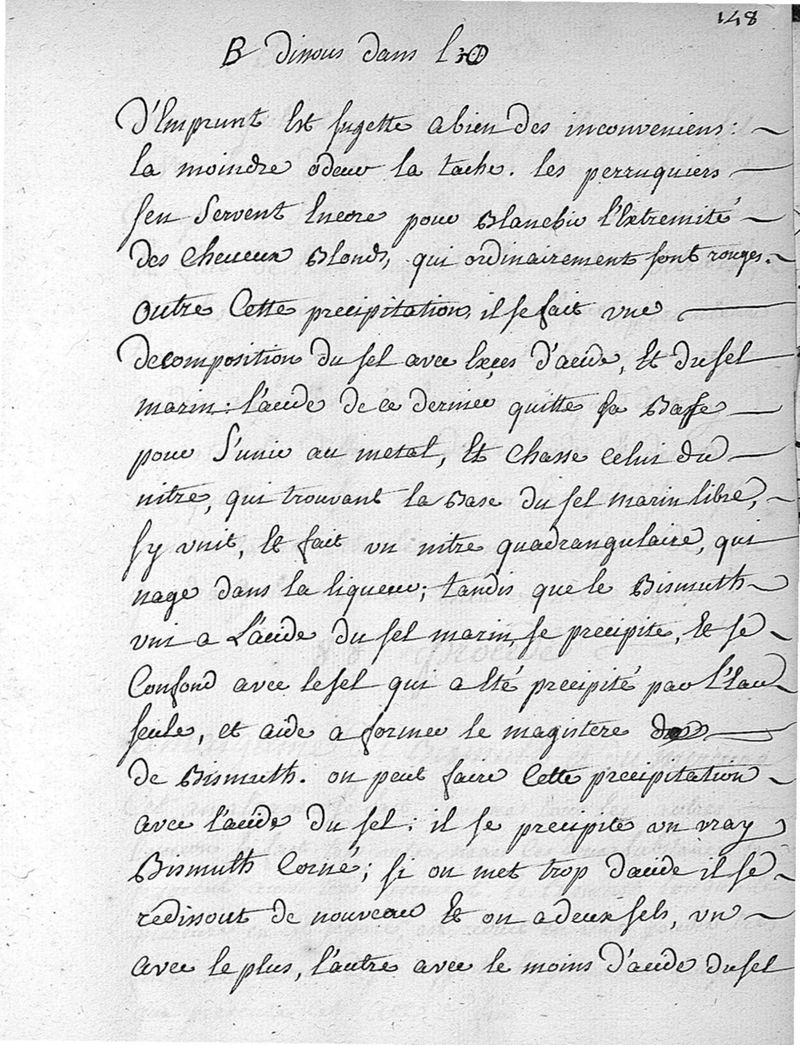 148
B dissous dans l'
d'Emprunt Est sugette a bien des inconveniens:
la moindre odeur la tache. les perruquiers
sen Servent Encore pour Blanchir l'Extremité
des cheveux Blonds, qui ordinairement sont rouges.
outre Cette precipitation, il se fait vne
decomposition du sel avec Exçes d'acide, Et du sel
marin: l'acide de ce dernier quitte sa Basse
pour S'unir au metal, Et Chasse celui du
nitre, qui trouvant la Base du sel marin libre,
sy vnit, Et fait vn nitre quadrangulaire, qui
nage dans la liqueur; tandis que le Bismuth
vni a L'acide du sel marin se precipite, Et se
Confond avec le sel qui a Eté precipité par l'Eau
seule, et aide a former le magistere
de Bismuth. on peut faire Cette precipitation
avec l'acide du sel: il se precipite vn vray
Bismuth Corné; si on met trop dacide il se
redissout de nouveau Et on a deux sels, vn
avec le plus, l'autre avec le moins d'acide du sel